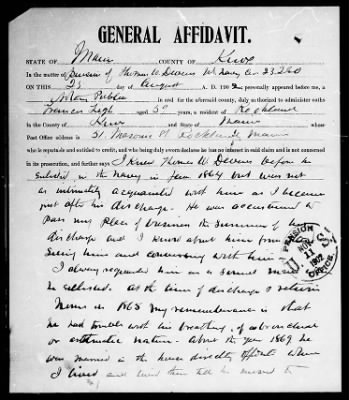 GENERAL AFFIDAVIT.
STATE OF Maine COUNTY OF Knox
In the matter of Pension of Thomas W. Devens
ON THIS 23 day of August A. D. 190 personally appeared before me, a
Notary Public in and for the aforesaid county, duly authorized to administer oaths
aged 58 years, a resident of Rockland
in the County of Knox and State of Maine whose
Post Office address is 31 Masonic St Rockland, Maine
who is reputable and entitled to credit, and who being duly sworn declares he has no interest in said claim and is not concerned
in its prosecution, and further says: I knew Thomas W. Devens before he
enlisted in the navy in 1864 but was not
as intimately acquainted with him as I became
just after his discharge. He was accustomed to
pass my place of business the summer of his
discharge and I knew about him from
seeing him and conversing with him.
I always regarded him as a sound man
he enlisted. At the time of discharge & return
home in 1865 my remembrance is that
he had trouble with his breathing, of
or asthmatic nature. About the year 1869 he
was married in the house directly opposite where
I lived and lived there till he moved to
PENSION OFFICE